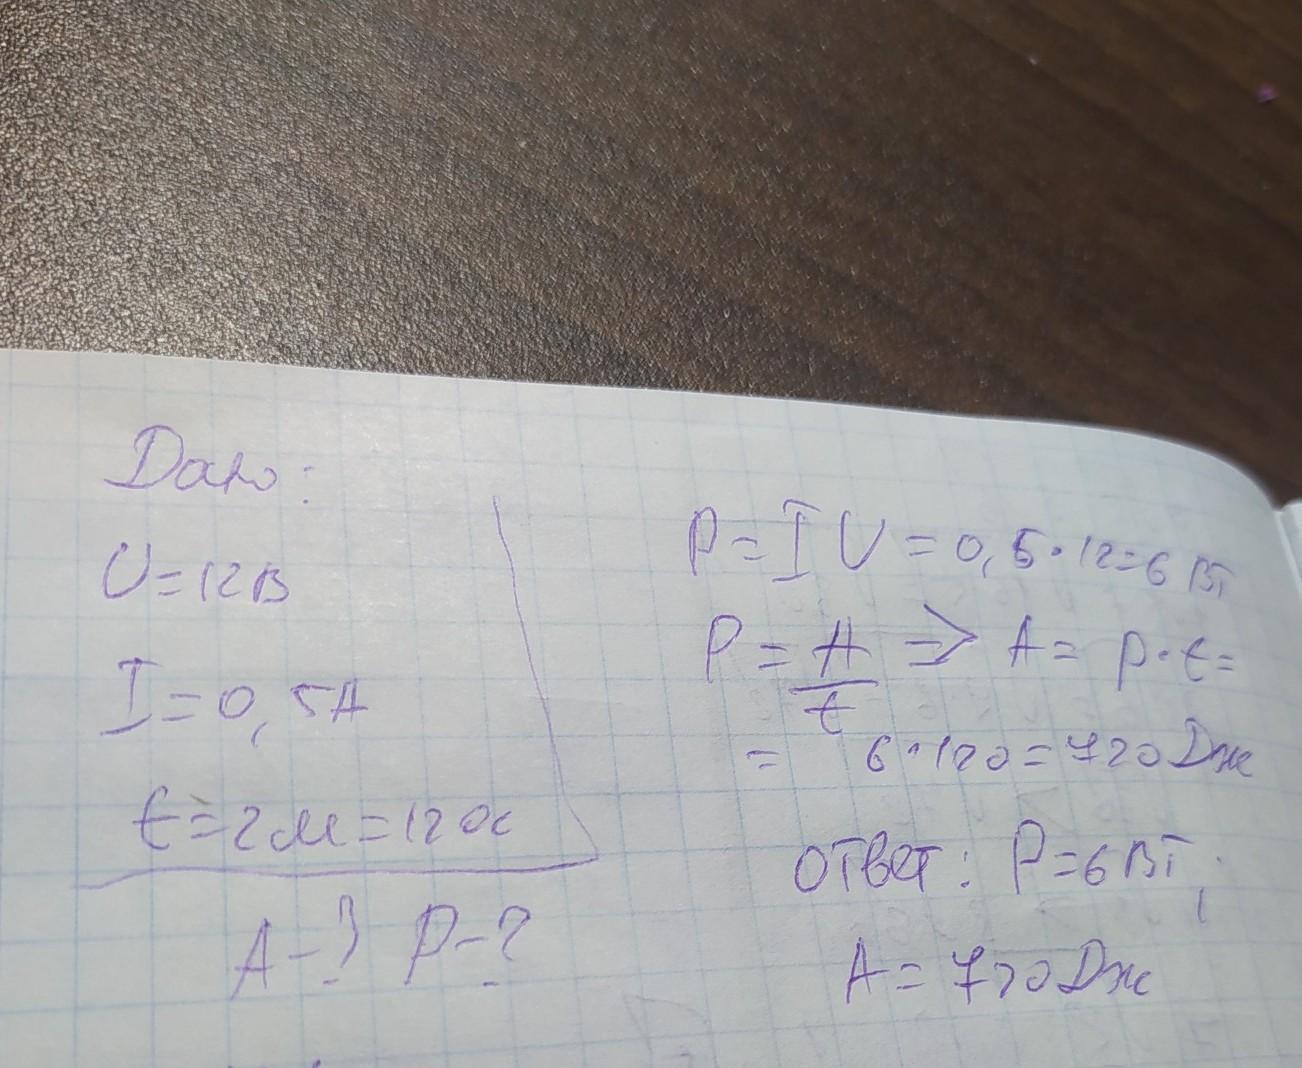 Дано:
U=12В
I=0,5А
t=2м=120с
А-? P-?
P=IU=0,5·12=6 Вт
P=A/t => A= p·t=
= 6·120=720 Дж
ответ: P=6 Вт;
A=720 Дж